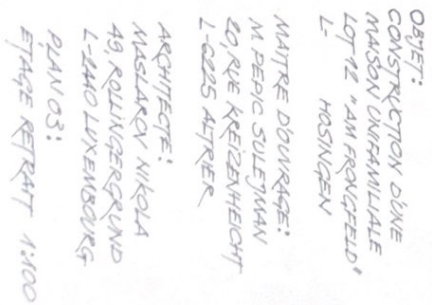 OBJET:
CONSTRUCTION D'UNE
MAISON UNIFAMILIALE
LOT 12 "AM FRONGFELD"
L- HOSINGEN
MAITRE D'OUVRAGE:
M PEPIC SULEJMAN
20 RUE KREIZENHEICHT
L-6225 ALTRIER
ARCHITECTE:
MASLARN NIKOLA
49 ROLLINGERGRUND
L-2440 LUXEMBOURG
PLAN 03:
ETAGE RETRAIT 1:100